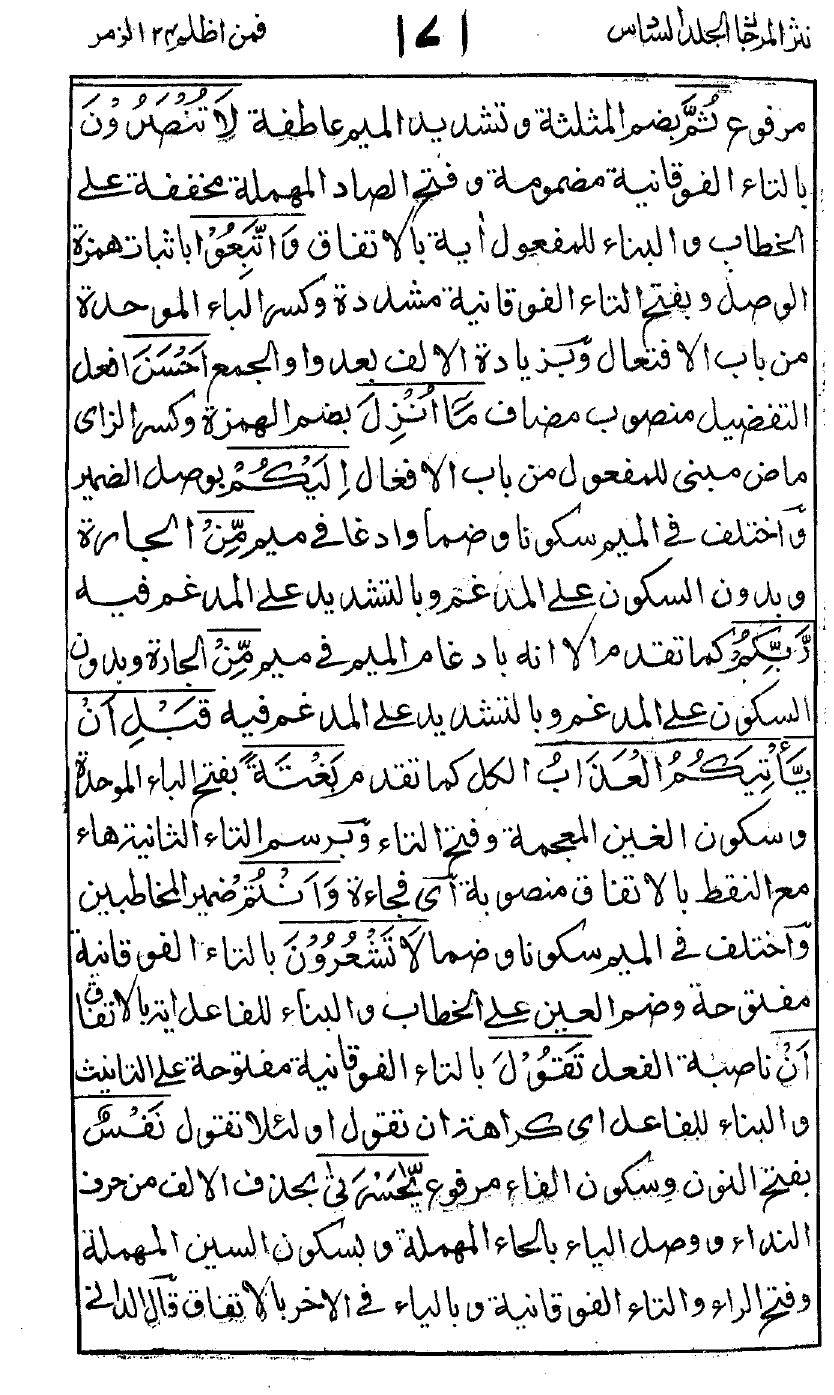 نثر المرجان الجلد السادس ١٧١ فمن اظلم ٢٤ الزمر
مرفوع ثُمَّ بضم المثلثة وتشديد الميم عاطفة لَا تُنْصَرُوْنَ
بالتاء الفوقانية مضمومة وفتح الصاد المهملة مخففة على
الخطاب والبناء للمفعول أية بالاتفاق وَاتَّبِعُوْا باثبات همزة
الوصل وبفتح التاء الفوقانية مشددة وكسر الباء الموحدة
من باب الافتعال وبزيادة الالف بعد واو الجمع اَحْسَنَ افعل
التفضيل منصوب مضاف مَآ اُنْزِلَ بضم الهمزة وكسر الزاى
ماض مبنى للمفعول من باب الافعال اِلَيْكُمْ بوصل الضمير
واختلف في الميم سكونا وضما وادغا في ميم مِّنْ الجارة
وبدون السكون على المدغم وبالتشديد على المدغم فيه
رَّبِّكُمْ كما تقدم الا انه بادغام الميم في ميم مِّنْ الجارة وبدون
السكون على المدغم وبالتشديد على المدغم فيه قَبْلِ اَنْ
يَّأْتِيَكُمُ الْعَذَابُ الكل كما تقدم بَغْتَةً بفتح الباء الموحدة
وسكون الغين المعجمة وفتح التاء وبرسم التاء الثانية هاء
مع النقط بالاتفاق منصوبة أى فجاءة وَاَنْتُمْ ضمير المخاطبين
واختلف في الميم سكونا وضما لَا تَشْعُرُوْنَ بالتاء الفوقانية
مفتوحة وضم العين على الخطاب والبناء للفاعل اية بالاتفاق
اَنْ ناصبة الفعل تَقُوْلَ بالتاء الفوقانية مفتوحة على التانيث
والبناء للفاعل اى كراهة ان تقول اولئلا تقول نَفْسٌ
بفتح النون وسكون الفاء مرفوع يّٰحَسْرَتٰى بحذف الالف من حرف
النداء ووصل الياء بالحاء المهملة وبسكون السين المهملة
وفتح الراء والتاء الفوقانية وبالياء في الاخر بالاتفاق قال الدانى